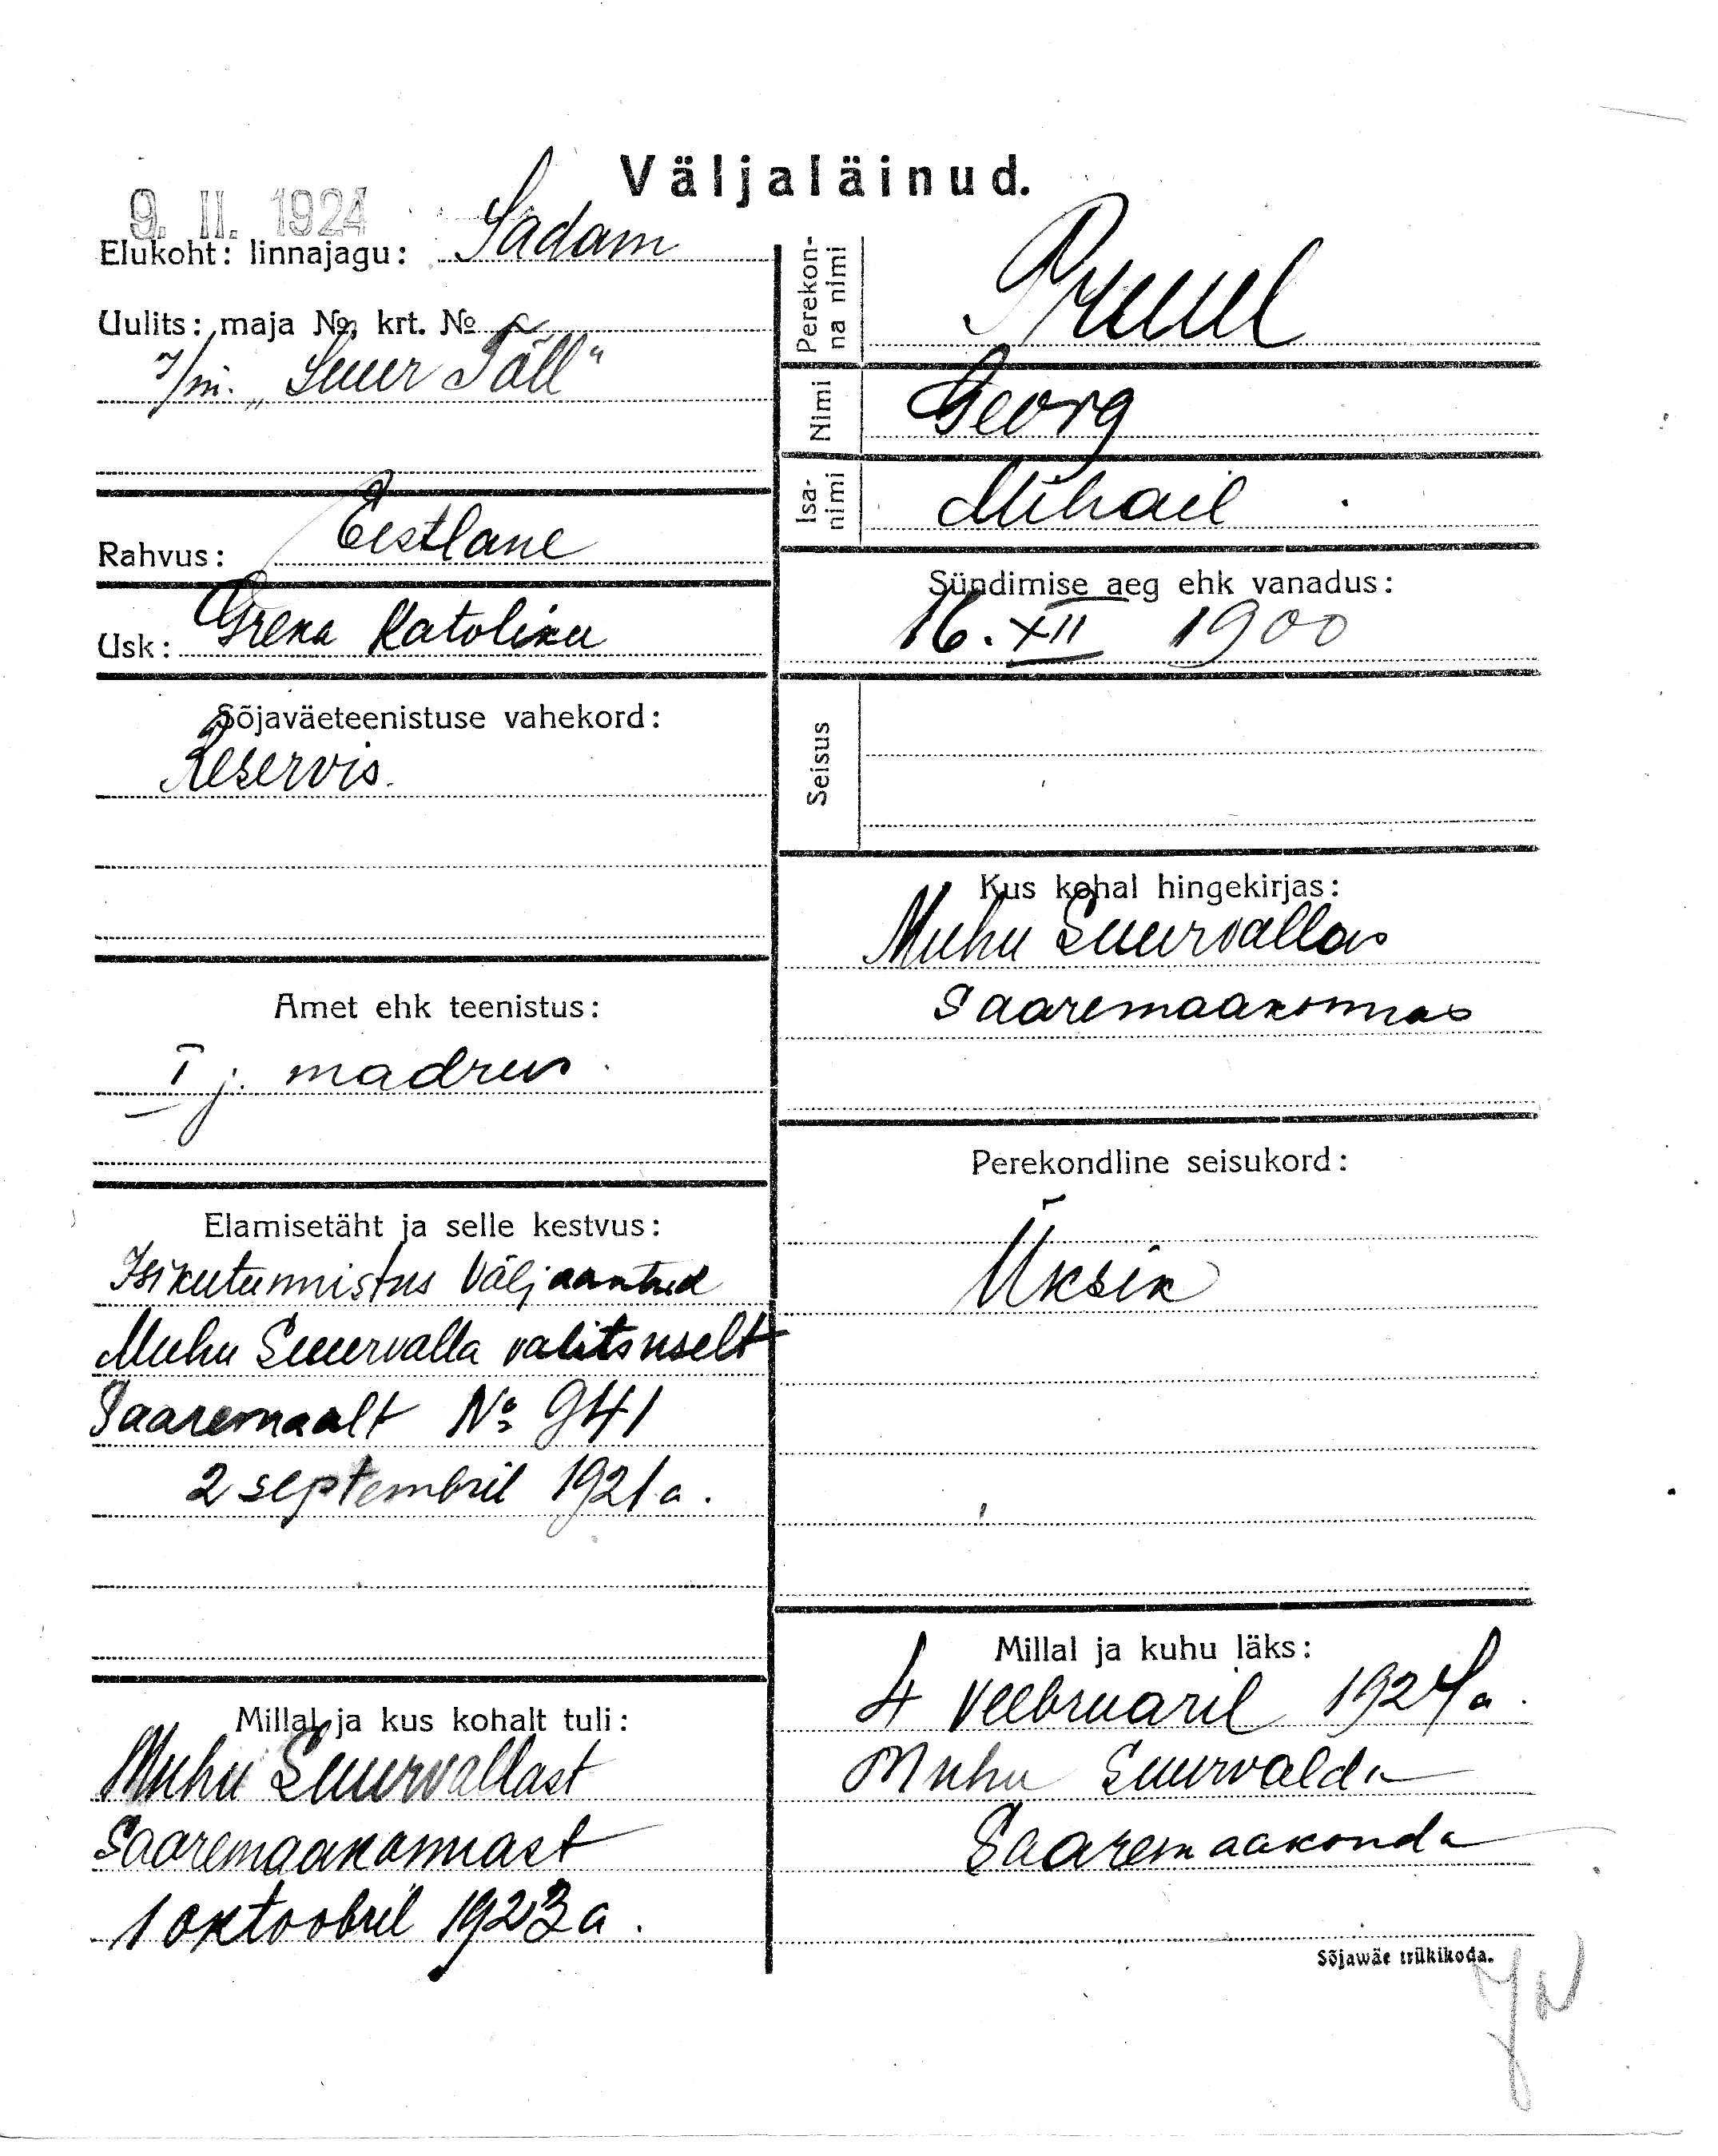 Väljaläinud.
9. II. 1924
Elukoht: linnajagu: Sadam
Uulits: maja №, krt. №
j/m. „Suur Tõll“
Rahvus: Eestlane
Usk: Greka Katoliku
Sõjaväeteenistuse vahekord:
Reservis.
Amet ehk teenistus:
I j. madrus.
Elamisetäht ja selle kestvus:
Isikutunnistus väljaantud
Muhu Suurvalla valitsuselt
Saaremaalt № 941
2 septembril 1921 a.
Millal ja kus kohalt tuli:
Muhu Suurvallast
Saaremaakonnast
1 oktoobril 1923 a.
Perekonna nimi Pruul
Nimi Georg
Isanimi Mihail
Sündimise aeg ehk vanadus:
16. XII 1900
Seisus
Kus kohal hingekirjas:
Muhu Suurvallas
Saaremaakonnas
Perekondline seisukord:
Üksik
Millal ja kuhu läks:
4 veebruaril 1924 a.
Muhu Suurvalda
Saaremaakonda
Sõjawäe trükikoda.